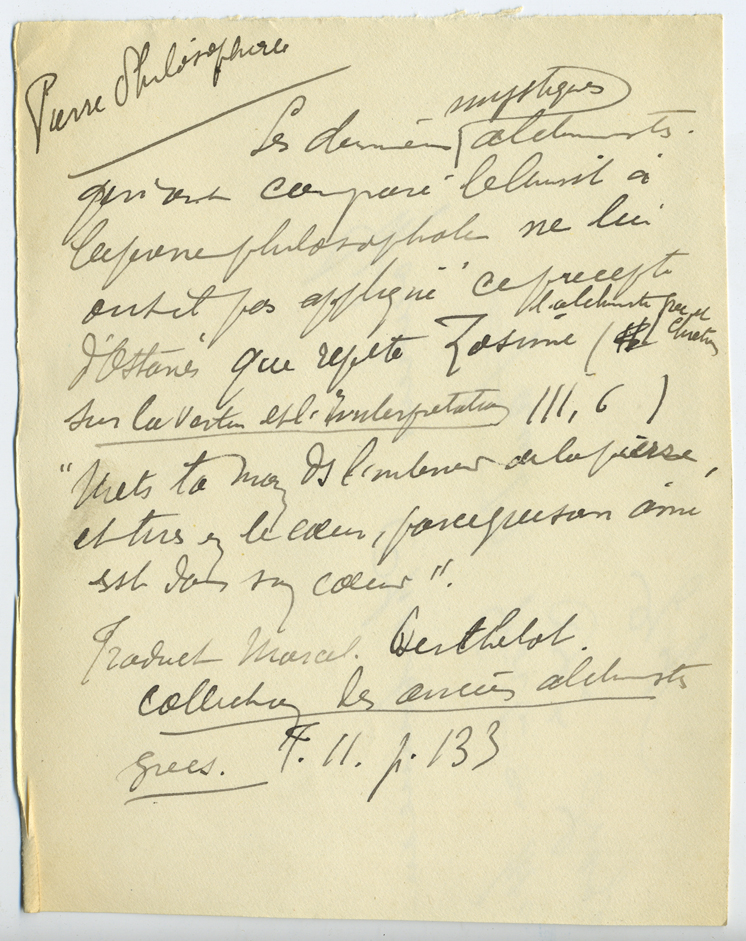 Pierre Philosophale
mystiques
Les derniers alchimistes
qui ont comparé le Christ à
la pierre philosophale ne lui
ont-il pas appliqué ce precepte
l'alchimiste grec et
d'Ostanès que repete Zosime ( Chretien
sur la Vertu et l'interpretation III, 6 )
"Mets ta main ds l'interieur de la pierre,
et tires en le cœur, parce que son âme
est dans son cœur".
Traduct Marcel. Berthelot.
Collection des anciens alchimistes
grecs. T. II. p. 133